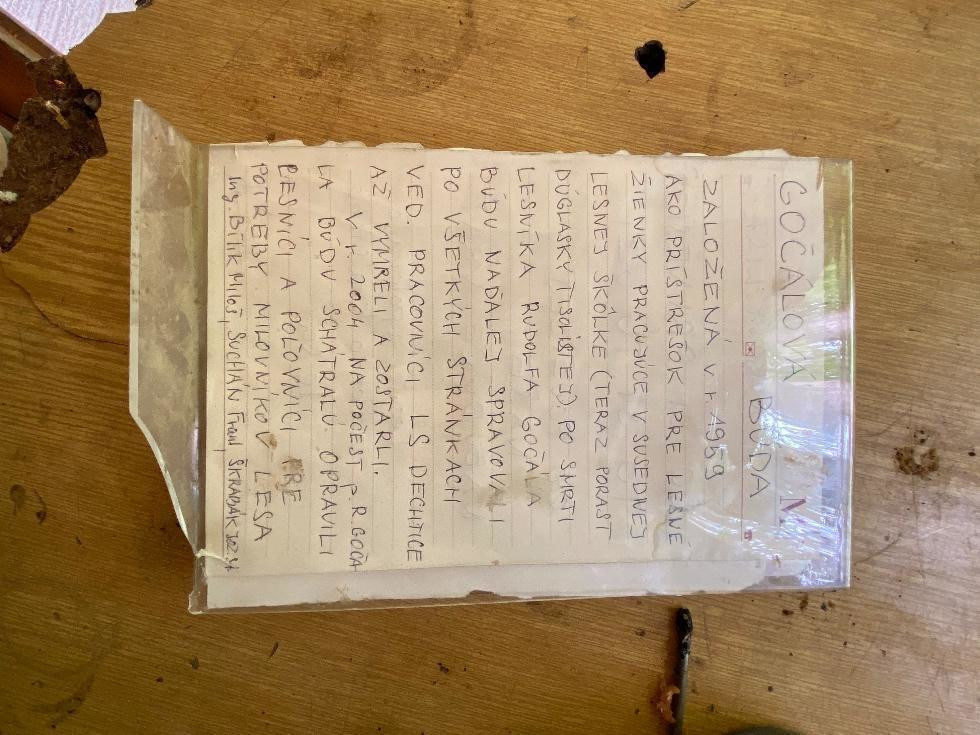 GOČÁLOVÁ
BÚDA
ZALOŽENÁ V r 1959
AKO PRÍSTREŠOK PRE LESNÉ
ŽIENKY PRACUJÚCE V SUSEDNEJ
LESNEJ ŠKÔLKE (TERAZ PORAST
DÚGLASKY TISOLISTEJ). PO SMRTI
LESNÍKA RUDOLFA GOČÁLA
BÚDU NAĎALEJ SPRAVOVALI
PO VŠETKÝCH STRÁNKACH
VED. PRACOVNÍCI LS DECHTICE
AŽ VYMRELI A ZOSTARLI.
V r. 2004 NA POČEST p. R. GOČA
LA BÚDU SCHÁTRALÚ OPRAVILI
LESNÍCI A POĽOVNÍCI PRE
POTREBY MILOVNÍKOV LESA
Ing. Bílik Miloš, SUCHÁN Franť. ŠKRABÁK Joz. st.